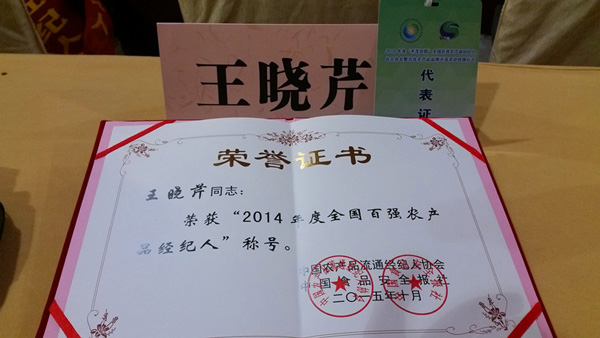 王晓芹
代表证
荣誉证书
王晓芹同志：
荣获“2014年度全国百强农产
品经纪人”称号。
中国农产品流通经纪人协会
中国食品安全报社
二〇一五年十月